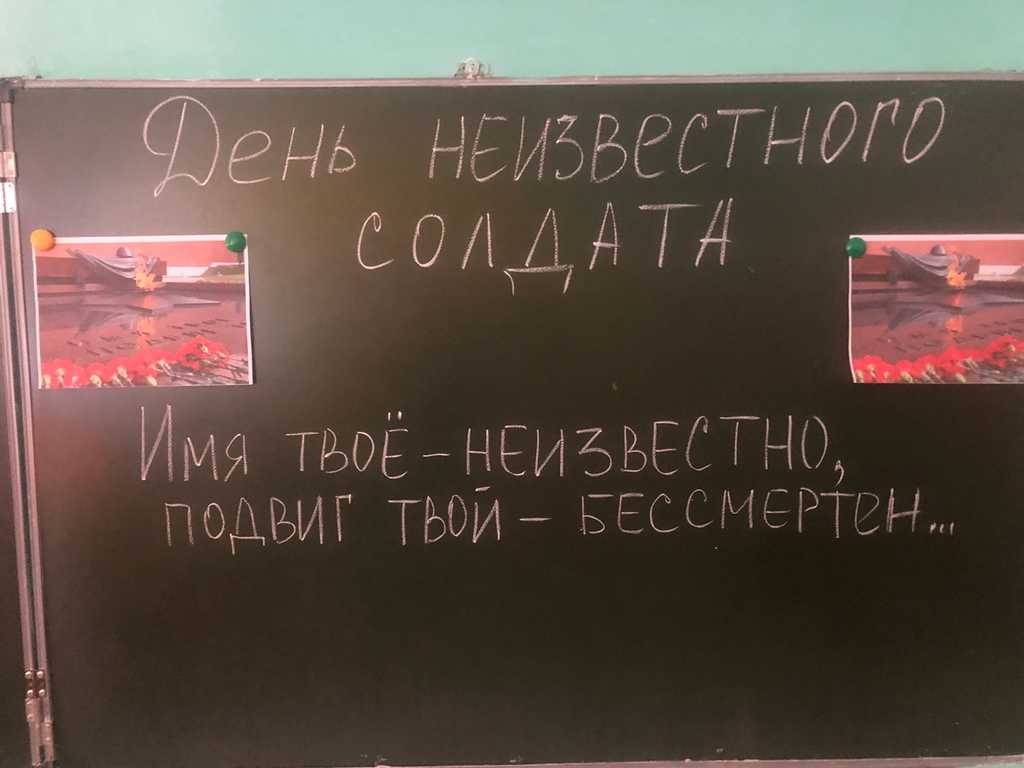 День НЕИЗВЕСТНОГО
СОЛДАТА
Имя ТВОЁ - НЕИЗВЕСТНО,
ПОДВИГ ТВОЙ - БЕССМЕРТЕН...